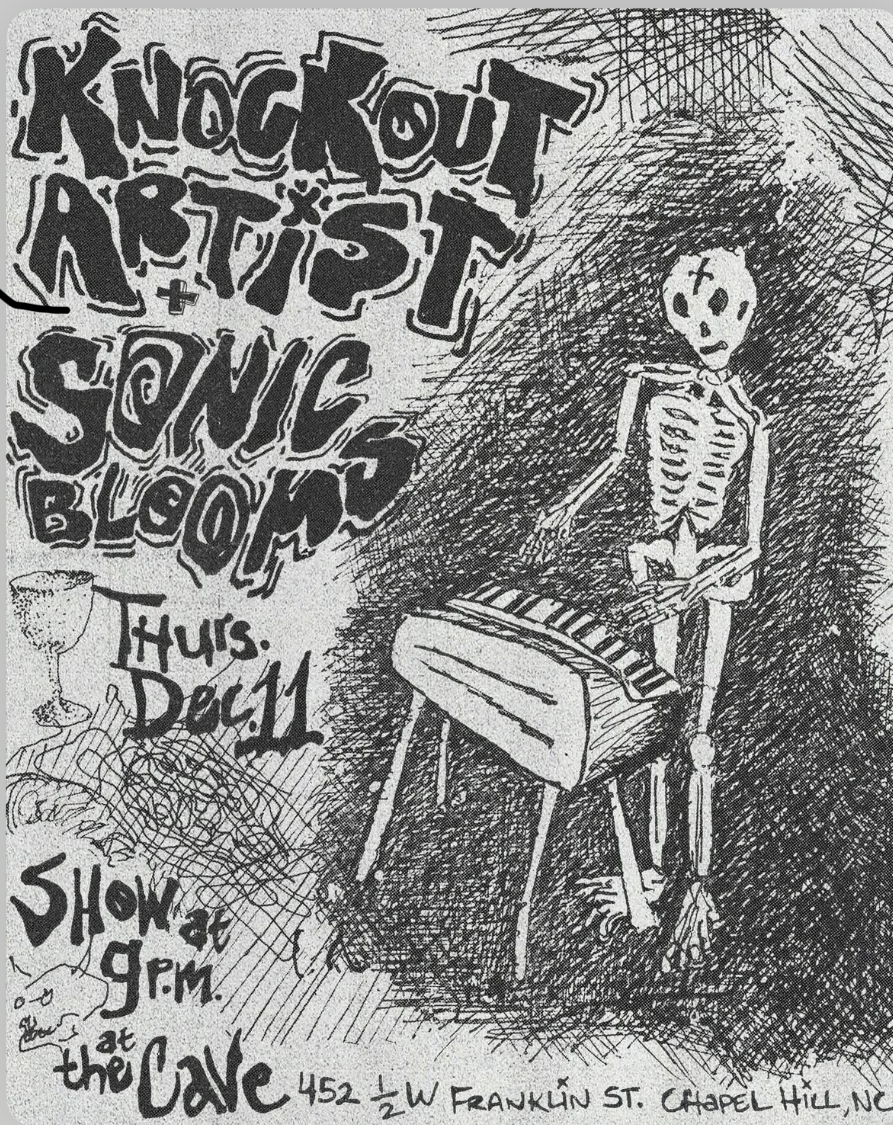 KNOCKOUT
ARTiST
+
SONIC
BLOOMS
THurs.
Dec. 11
SHOW at
9 P.M.
at
the CAVe
452 1/2 W FRANKLiN ST. CHAPEL HiLL, NC